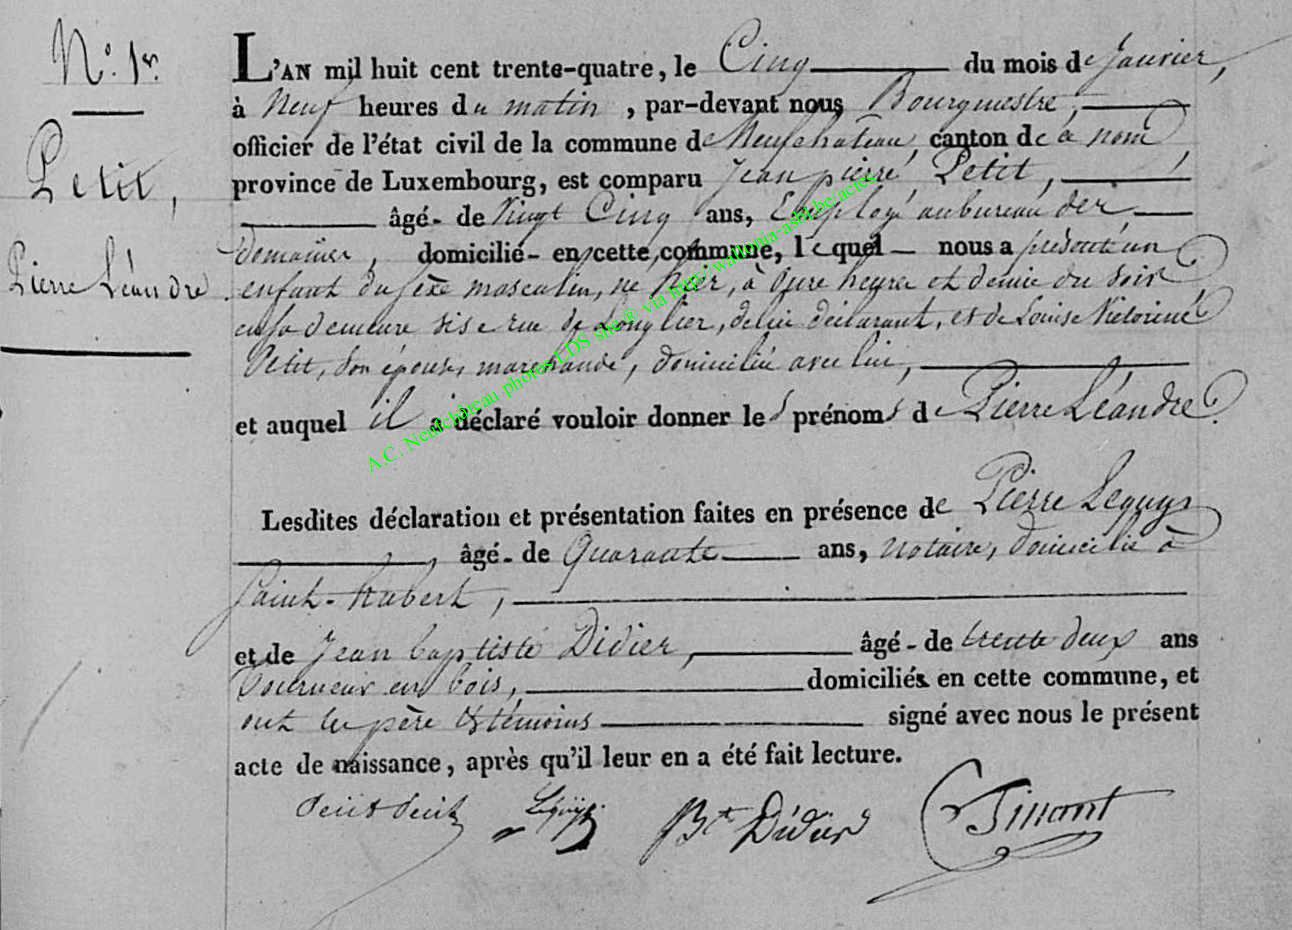 N.º 1er.
Petit,
Pierre Léandre
L'AN mil huit cent trente-quatre, le Cinq du mois de Janvier,
à Neuf heures du matin, par-devant nous Bourgmestre,
officier de l'état civil de la commune de Neufchateau, canton de ce nom
province de Luxembourg, est comparu Jean pierre Petit,
âgé - de Vingt Cinq ans, Employé au bureau des
Domaines, domicilié - en cette commune, lequel - nous a présenté un
enfant du sexe masculin, né hier, à onze heures et demie du soir
en sa demeure sise rue de Longlier, de lui déclarant, et de Louise Victorine
Petit, son épouse, marchande, domiciliée avec lui,
et auquel il a déclaré vouloir donner les prénoms de Pierre Léandre.
Lesdites déclaration et présentation faites en présence de Pierre Leguys
, âgé - de Quarante ans, notaire, domicilié à
Saint-hubert,
et de Jean baptiste Didier, âgé - de trente deux ans
Tourneur en bois, domiciliés en cette commune, et
ont les père & témoins signé avec nous le présent
acte de naissance, après qu'il leur en a été fait lecture.
Bte Didier
A.C. Neufchâteau photos LDS site® via http://wallonia-asbl.be/actes